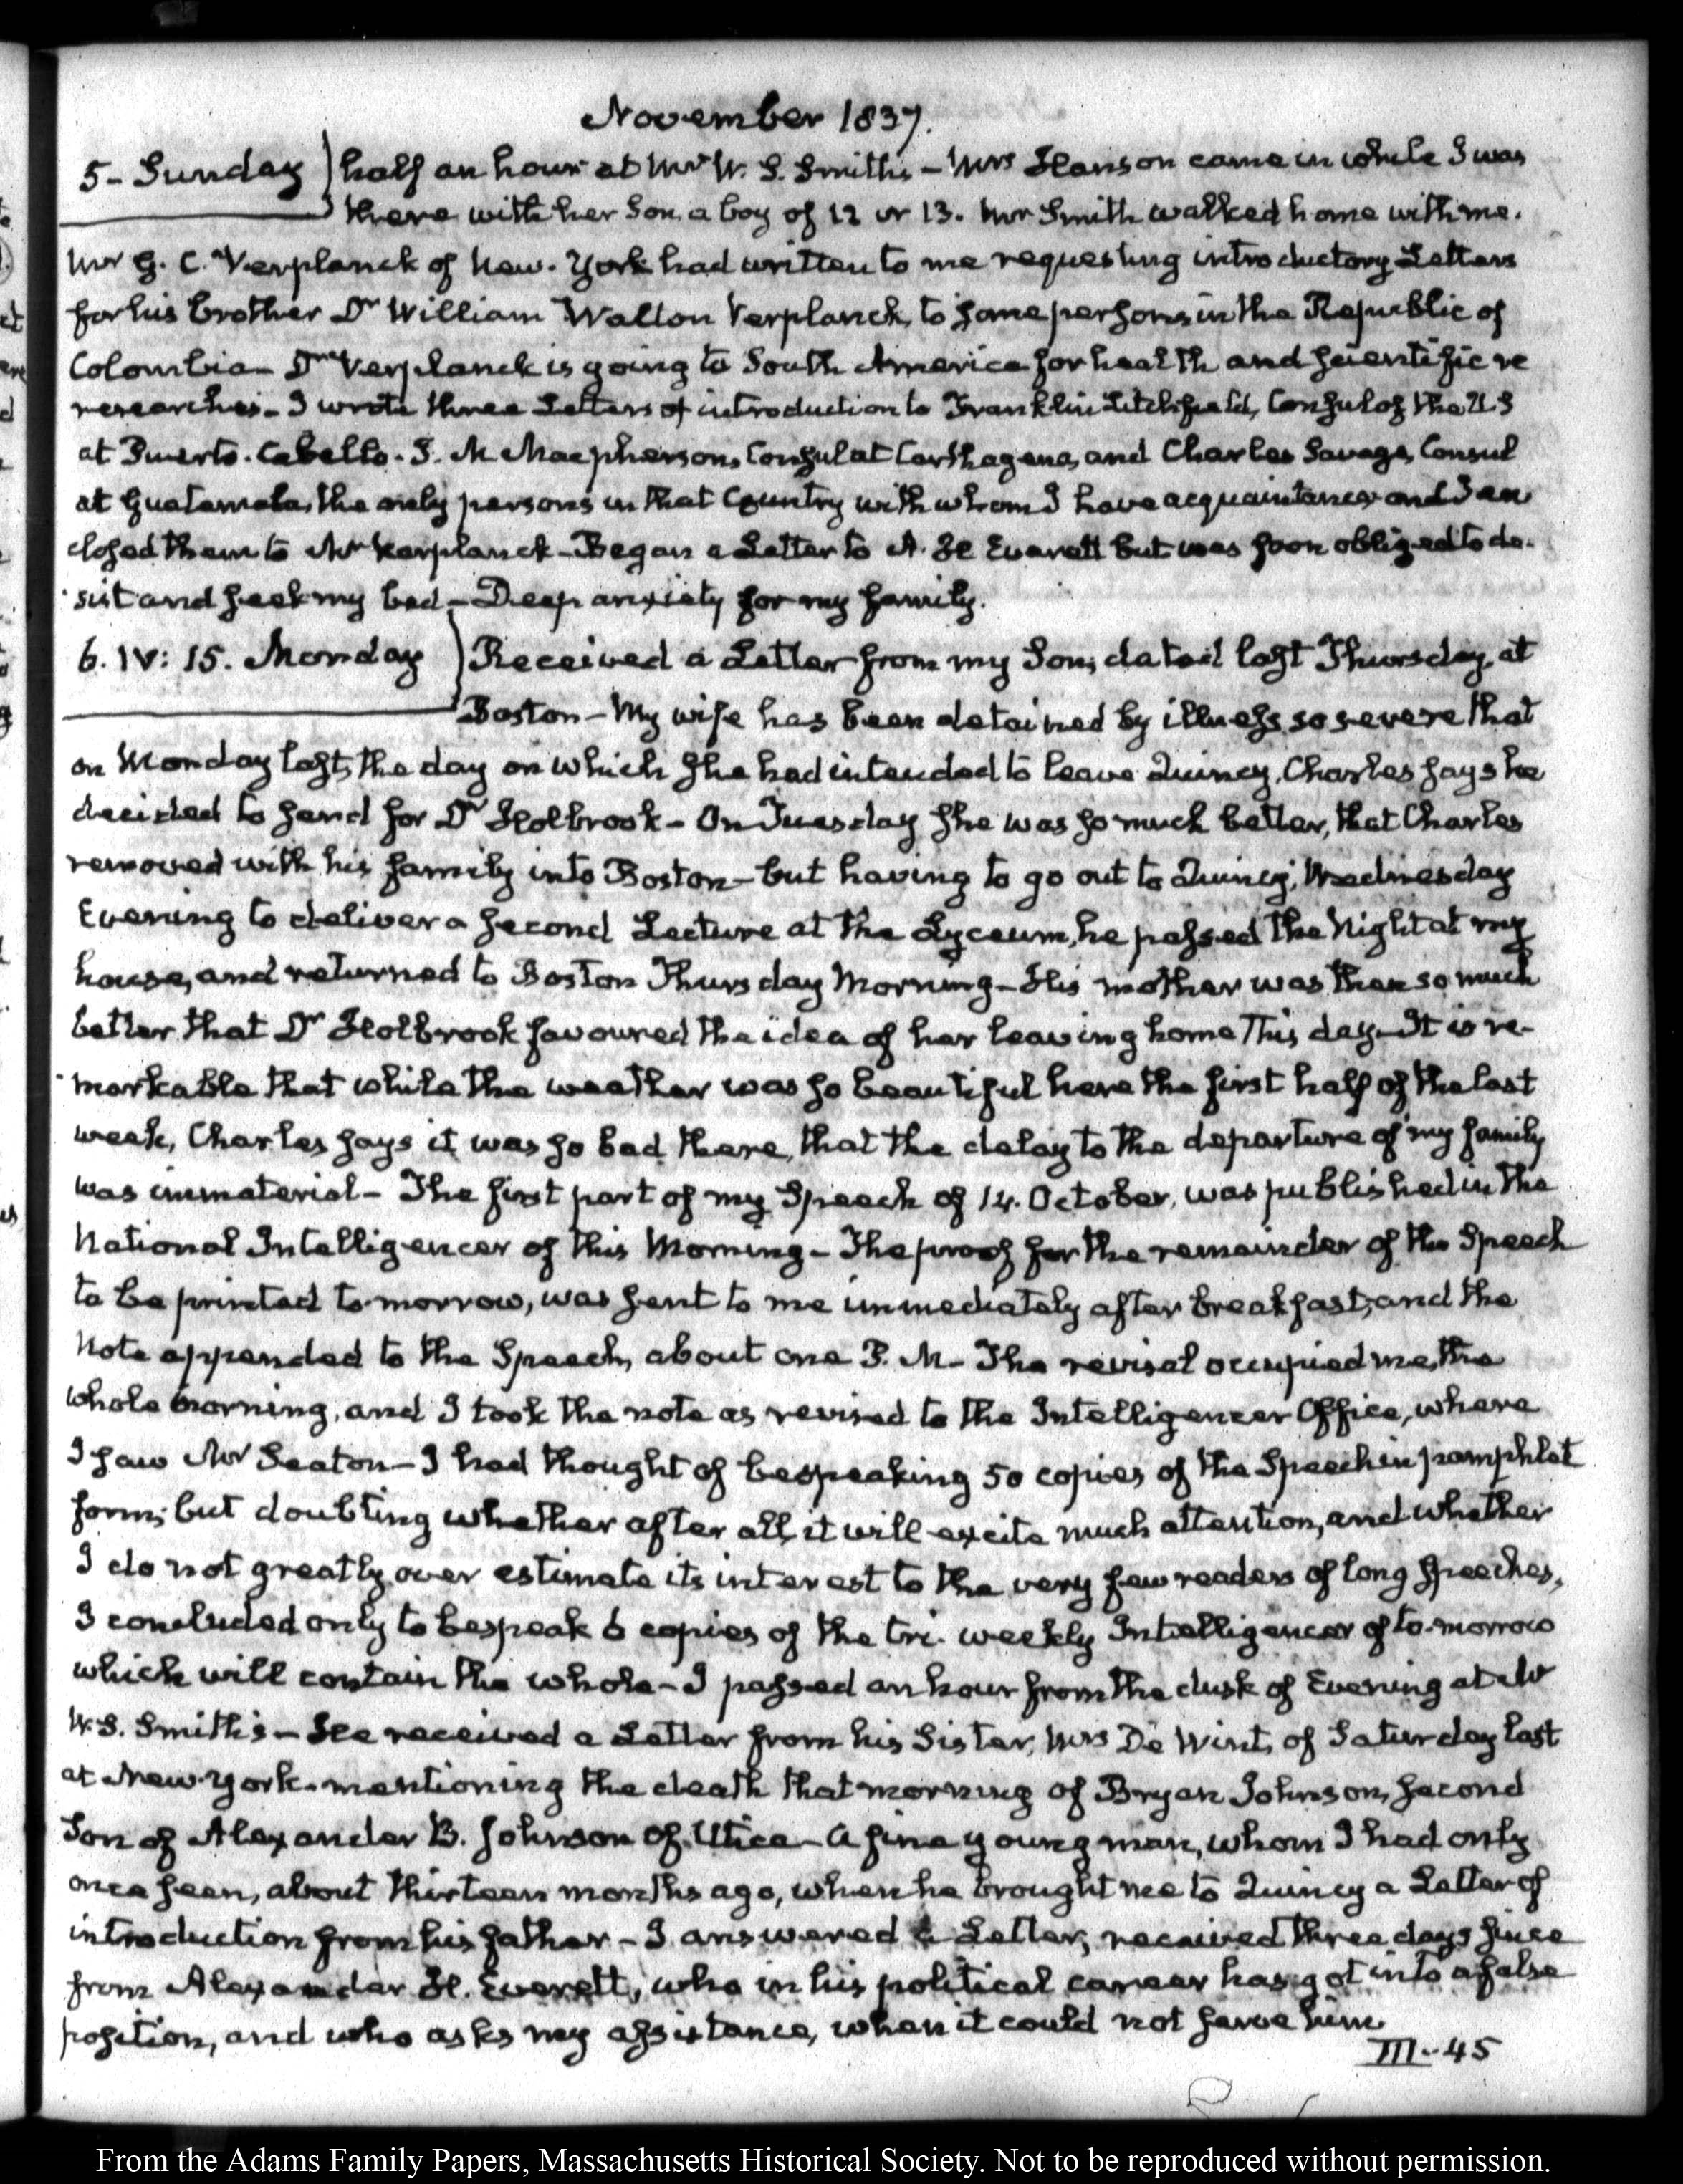 November 1837.
5- Sunday } half an hour at Mr W. S. Smith's – Mrs Hanson came in while I was
there with her Son, a boy of 12 or 13. Mr Smith walked home with me.
Mr G. C. Verplanck of New-York had written to me requesting introductory Letters
for his brother Dr William Walton Verplanck, to some persons in the Republic of
Colombia – Dr Verplanck is going to South America for health and scientific re
researches – I wrote three Letters of introduction to Franklin Litchfield, Consul of the U.S
at Puerto-Cabello – J. M Macpherson, Consul at Carthagena, and Charles Savage, Consul
at Guatamala, the only persons in that Country with whom I have acquaintance and I en
closed them to Mr Verplanck – Began a Letter to A. H Everett but was soon obliged to de-
sist and seek my bed – Deep anxiety for my family.
6. IV: 15. Monday } Received a Letter from my Son, dated last Thursday, at
Boston – My wife has been detained by illness, so severe that
on Monday last, the day on which she had intended to leave Quincy, Charles says he
decided to send for Dr Holbrook – On Tuesday she was so much better, that Charles
removed with his family into Boston – but having to go out to Quincy, Wednesday
Evening to deliver a second Lecture at the Lyceum, he passed the Night at my
house, and returned to Boston Thursday Morning – His mother was then so much
better that Dr Holbrook favoured the idea of her leaving home This day – It is re-
markable that while the weather was so beautiful here the first half of the last
week, Charles says it was so bad there, that the delay to the departure of my family
was immaterial – The first part of my Speech of 14. October, was published in the
National Intelligencer of this Morning – The proof for the remainder of the Speech
to be printed to-morrow, was sent to me immediately after breakfast, and the
Note appended to the Speech, about one P. M – The revisal occupied me, the
whole morning, and I took the note as revised to the Intelligencer Office, where
I saw Mr Seaton – I had thought of bespeaking 50 copies of the Speech in pamphlet
form; but doubting whether after all, it will excite much attention, and whether
I do not greatly over estimate its interest to the very few readers of long speeches,
I concluded only to bespeak 6 copies of the tri-weekly Intelligencer of to-morrow
which will contain the whole – I passed an hour from the dusk of Evening at Mr
W. S. Smith's – He received a Letter from his Sister, Mrs De Wint, of Saturday last
at New-York – mentioning the death that morning of Bryan Johnson, second
Son of Alexander B. Johnson of Utica – a fine young man, whom I had only
once seen, about thirteen months ago, when he brought me to Quincy a Letter of
introduction from his father – I answered a Letter, received three days since
from Alexander H. Everett, who in his political career has got into a false
position, and who asks my assistance, when it could not serve him
III–45
From the Adams Family Papers, Massachusetts Historical Society. Not to be reproduced without permission.